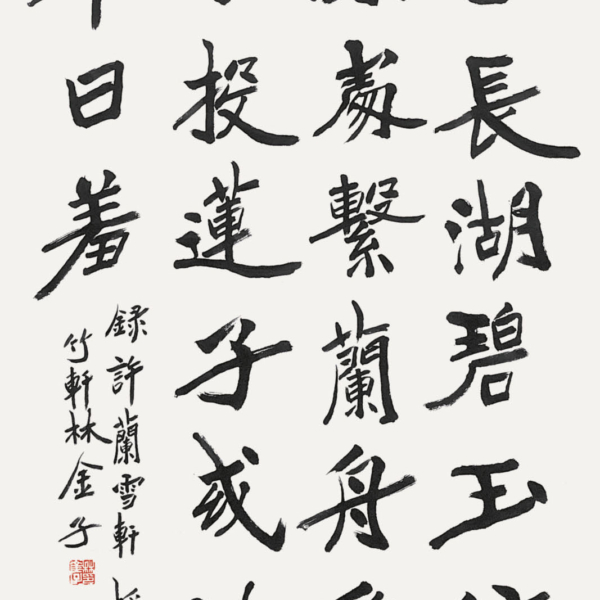 長湖碧玉
處繫蘭舟
投蓮子或
日羞
錄許蘭雪軒
竹軒林金子